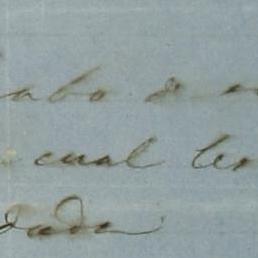 abo d
cual ter
dada